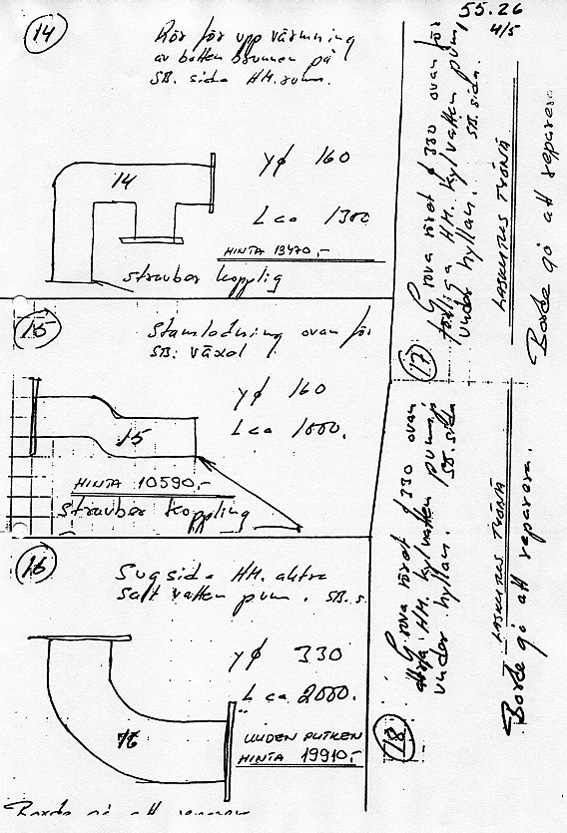 55.26
4/5
14
Rör för uppvärmning
av botten brunnen på
SB. sida HM. rum.
14
yϕ 160
L ca 1300
HINTA 13470,-
strauber kopplig
15
Stamlodning ovan för
SB. växel.
yϕ 160
L ca 1000.
15
HINTA 10590,-
strauber koppling
16
Sugsida HM. aktre
salt vatten pum. SB. s.
yϕ 330
L ca 2000.
16
UUDEN PUTKEN
HINTA 19910,-
Borde gå att reparera
17
Grova röret ϕ 330 ovan för
förliga HM. kylvatten pump
under hyllan. SB. sida.
LASKUTUS TYÖNÄ
Borde gå att reparera
18
Grova röret ϕ 330 ovan
aktra HM. kylvatten pump
under hyllan. SB. sida
LASKUTUS TYÖNÄ
Borde gå att reparera.